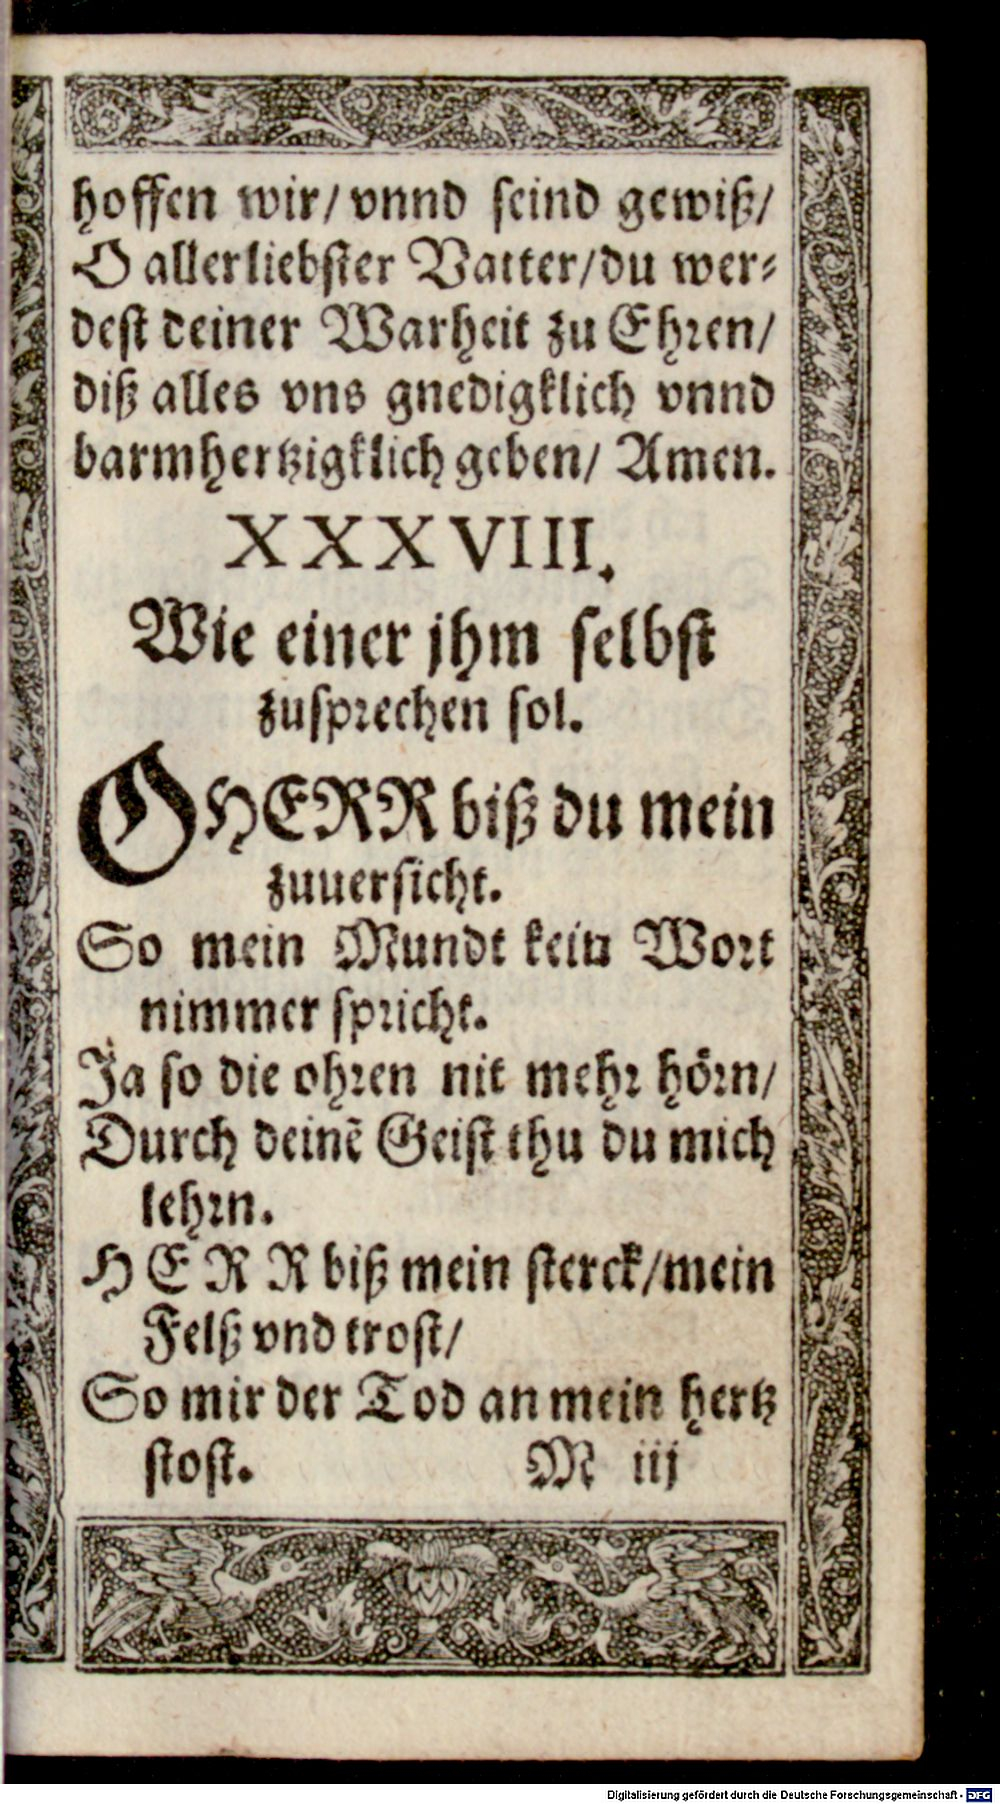 hoffen wir/ vnnd seind gewiß/
O allerliebster Vatter/du wer-
dest deiner Warheit zu Ehren/
diß alles vns gnedigklich vnnd
barmhertzigklich geben/ Amen.
XXXVIII.
Wie einer jhm selbst
zusprechen sol.
O HERR biß du mein
zuuersicht.
So mein Mundt kein Wort
nimmer spricht.
Ja so die ohren nit mehr hörn/
Durch deinẽ Geist thu du mich
lehrn.
HERR biß mein sterck/mein
Felß vnd trost/
So mir der Tod an mein hertz
stost. M iij
Digitalisierung gefördert durch die Deutsche Forschungsgemeinschaft - DFG